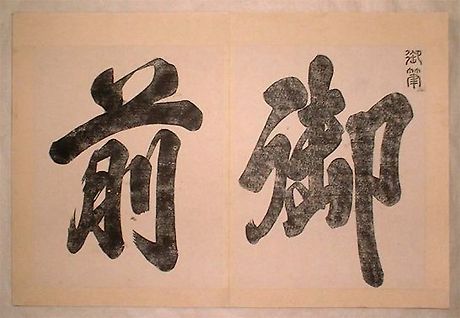 御筆
御前